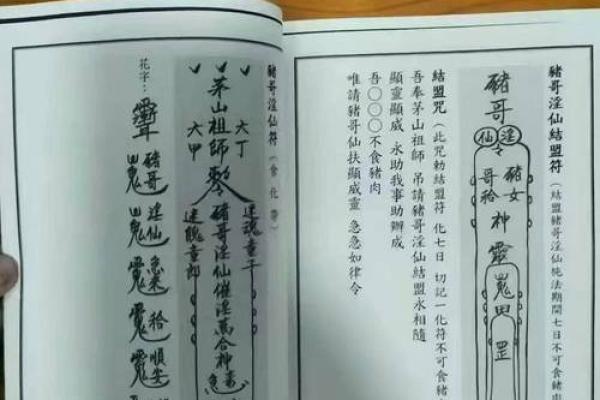 豬哥淫仙結盟符（結盟豬哥淫仙施法期間七日不可食豬肉
豬哥
淫
仙
令
豬女
哥袷
神
靈
田
罡
結盟咒（此咒勅結盟符 化七日 切記一化符不可食豬
吾奉茅山祖師 弔請豬哥淫仙結盟永相隨
顯靈顯威 永助我事助辦成
吾〇〇〇不食豬肉
唯請豬哥仙扶顯威靈 急急如律令
豬哥淫仙符（食 化 帶）
六丁
茅山祖師
六甲
迷魂童子
豬哥淫仙催淫萬合神
迷魄童郎
花字：
豬哥
淫仙
急來
順安